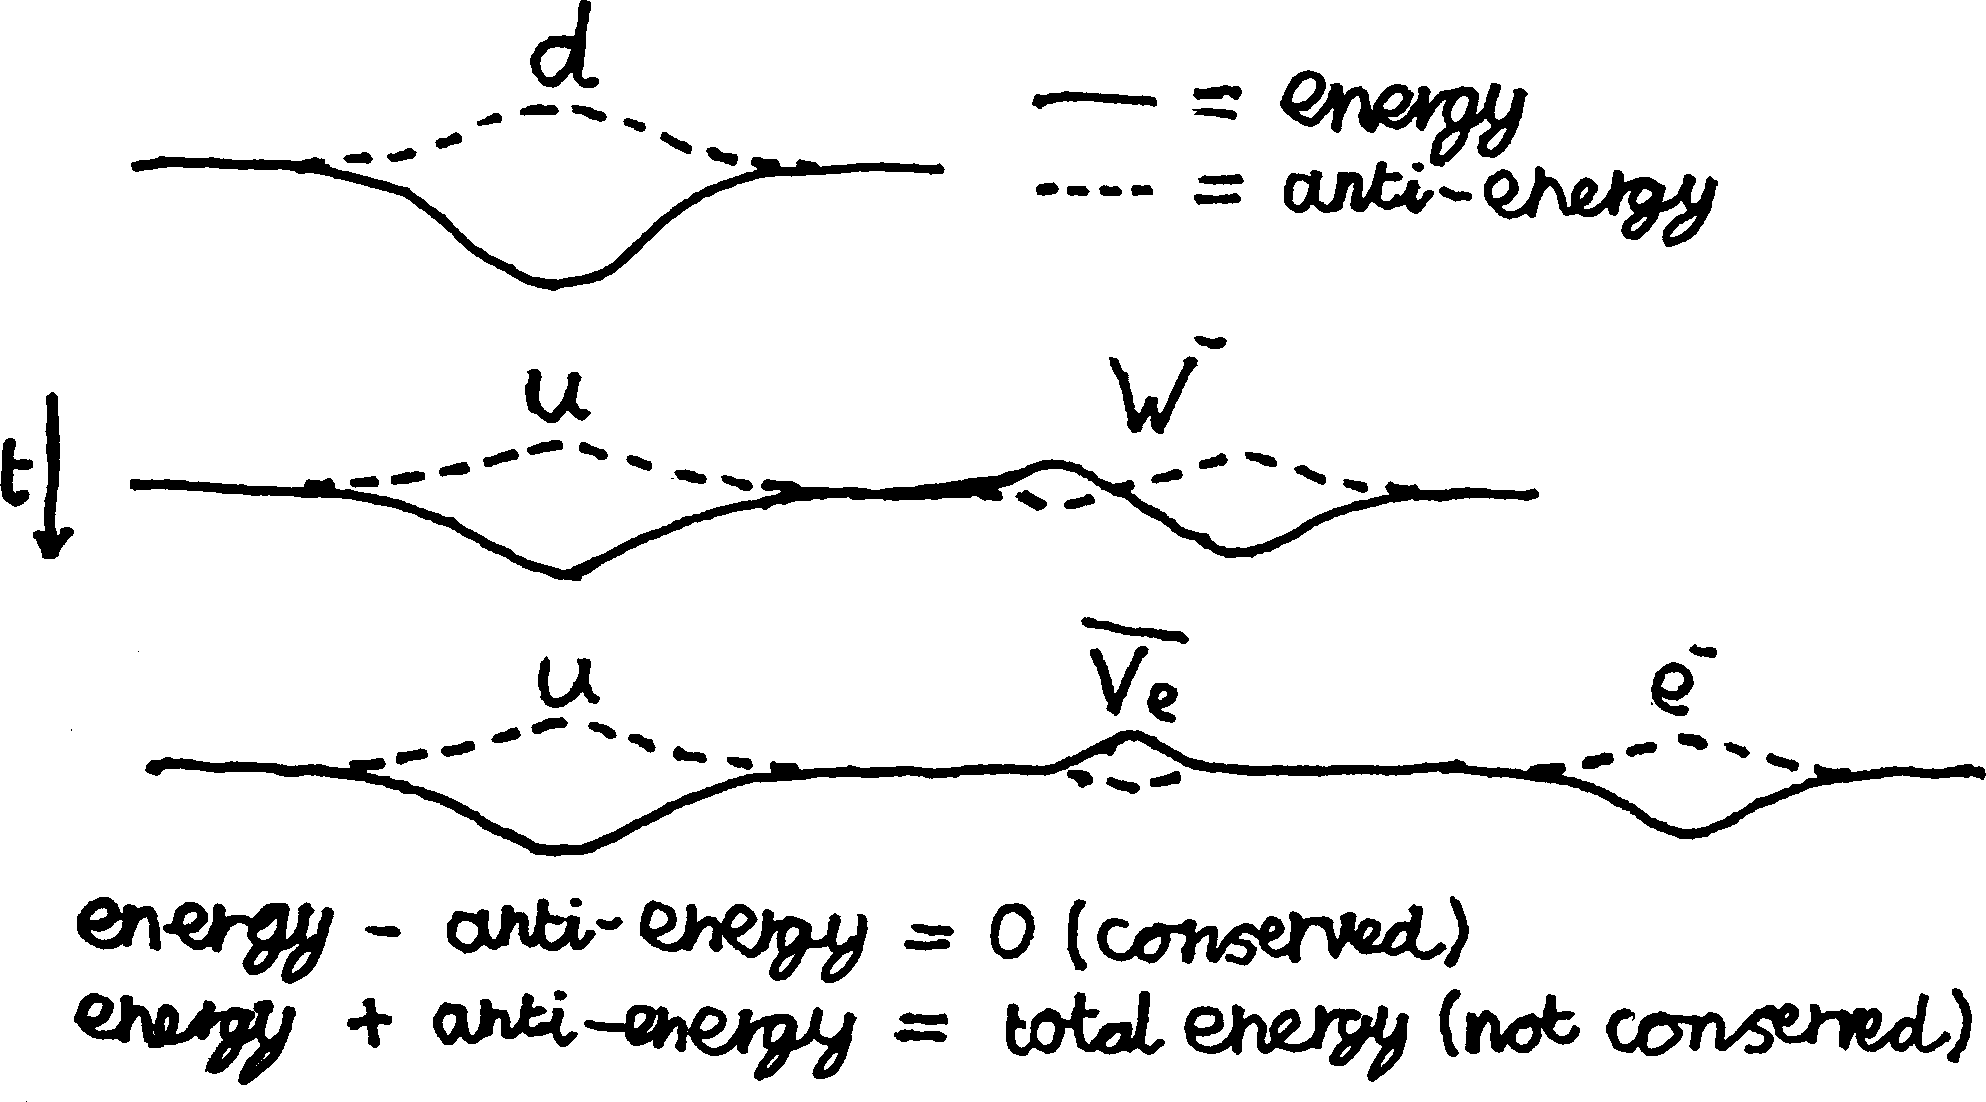 d
= energy
= anti-energy
u W⁻
t
u V̅e e⁻
energy - anti-energy = 0 (conserved)
energy + anti-energy = total energy (not conserved)